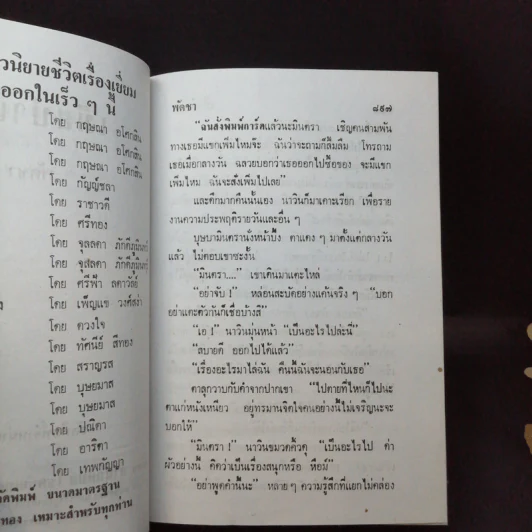 วนิยายชีวิตเรื่องเยี่ยม
ออกในเร็ว ๆ นี้
โดย กฤษณา อโศกสิน
โดย กฤษณา อโศกสิน
โดย กฤษณา อโศกสิน
โดย กัญญ์ชลา
โดย ราชาวดี
โดย ศรีทอง
โดย จุลลดา ภักดีภูมินทร์
โดย จุลลดา ภักดีภูมินทร์
โดย ศรีฟ้า ลดาวัลย์
โดย เพ็ญแข วงศ์สง่า
โดย ดวงใจ
โดย ทัศนีย์ สีทอง
โดย สราญรส
โดย บุษยมาส
โดย บุษยมาส
โดย ปณิตา
โดย อาริตา
โดย เทพกัญญา
จัดพิมพ์ ขนาดมาตรฐาน
ทอง เหมาะสำหรับทุกท่าน
พัดชา ๘๙๗
"ฉันสั่งพิมพ์การ์ดแล้วนะมินตรา เชิญคนสามพัน
ทางเธอมีแขกเพิ่มไหมจ๊ะ ฉันว่าจะถามก็ลืมลืม โทรถาม
เธอเมื่อกลางวัน ฉลวยบอกว่าเธอออกไปซื้อของ จะมีแขก
เพิ่มไหม ฉันจะสั่งเพิ่มไปเลย"
และดึกมากคืนนั้นเอง นาวินก็มาเคาะเรียก เพื่อราย
งานความประพฤติรายวันและอื่น ๆ
บุษบามินตรานั่งหน้าบึ้ง ตาแดง ๆ มาตั้งแต่กลางวัน
แล้ว ไม่ตอบเขาซะงั้น
"มินตรา...." เขาเดินมาแตะไหล่
"อย่าจับ !" หล่อนสะบัดอย่างแค้นจริง ๆ "บอก
อย่าแตะตัวกันก็เชื่อบ้างสิ"
"เอ !" นาวินมุ่นหน้า "เป็นอะไรไปล่ะนี่"
"สบายดี ออกไปได้แล้ว"
"เรื่องอะไรมาไล่ฉัน คืนนี้ฉันจะนอนกับเธอ"
ตาลุกวาบกับคำจากปากเขา "ไปตายที่ไหนก็ไปนะ
ตาแก่หนังเหนียว อยู่ทรมานจิตใจคนอย่างนี้ไม่เจริญนะจะ
บอกให้"
"มินตรา !" นาวินขมวดคิ้วดุ "เป็นอะไรไป ด่า
ผัวอย่างนี้ คิดว่าเป็นเรื่องสนุกหรือ หือม์"
"อย่าพูดคำนี้นะ" หลาย ๆ ความรู้สึกที่แยกไม่คล่อง